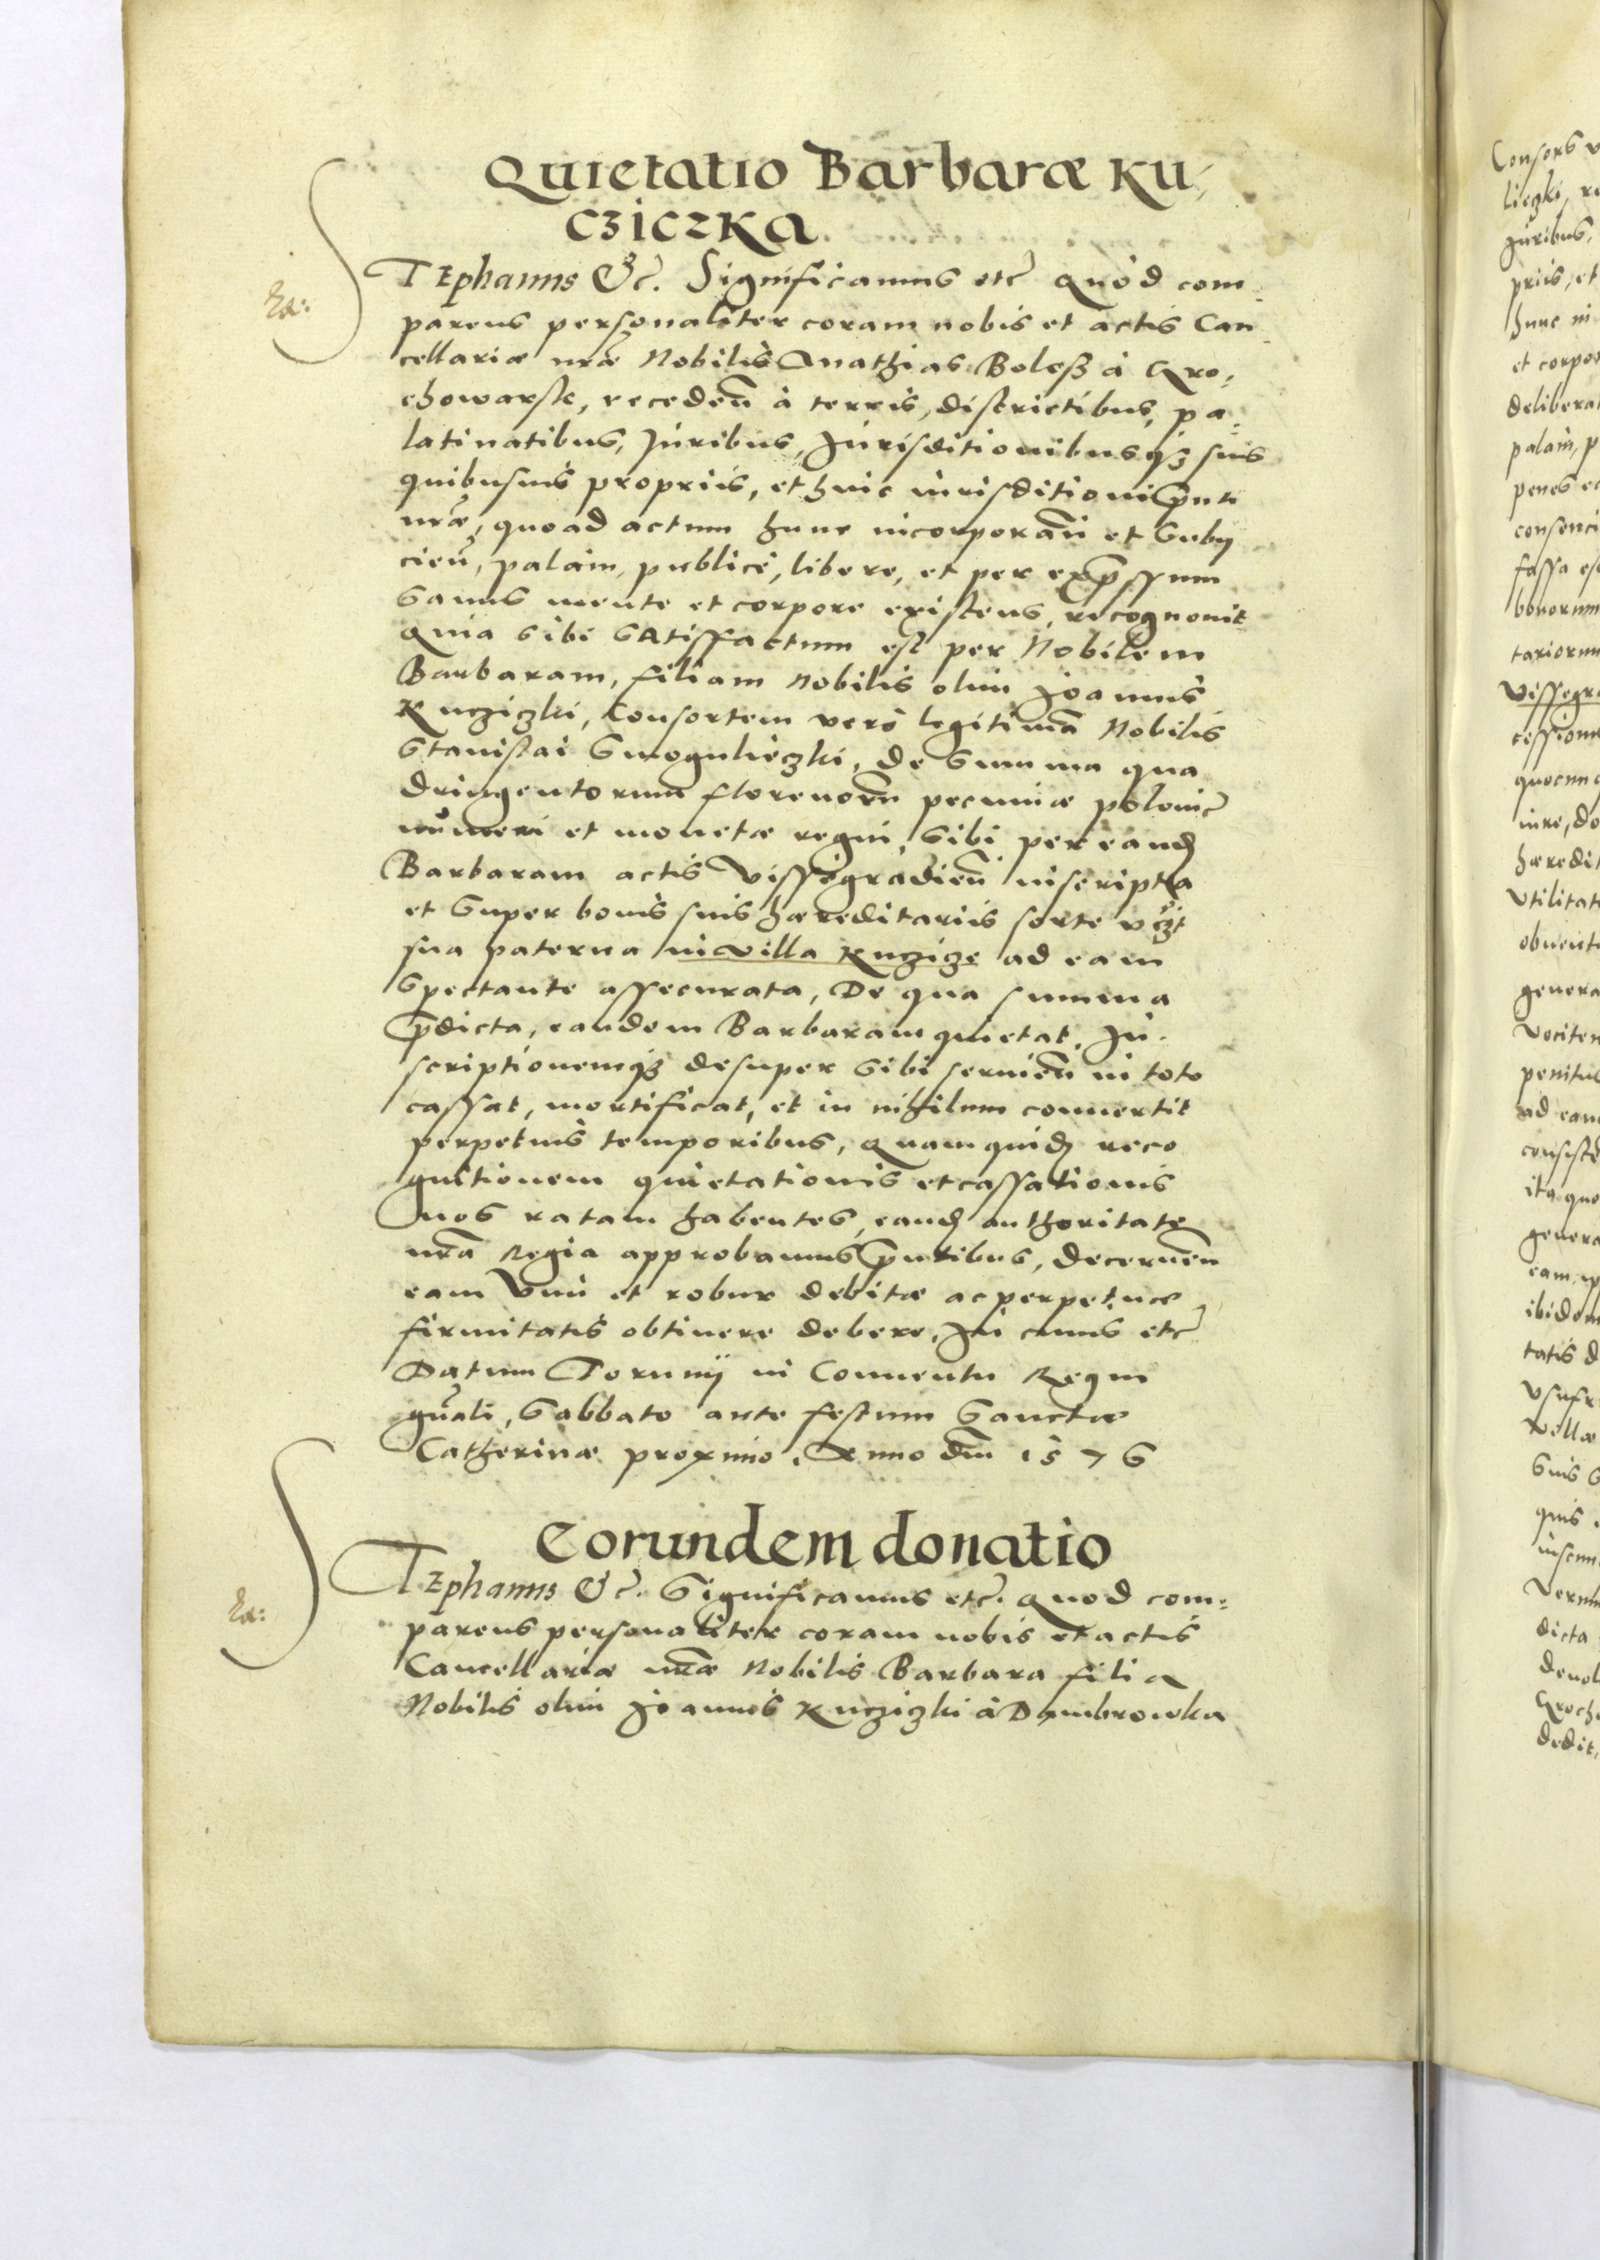 Quietatio Barbaræ Ku-
cziczka
STEphanus &c. Significamus etc Quod com-
parens personaliter coram nobis et actis Can-
Ea:
cellariæ nræ Nobilis Mathias Bolesz à Gro-
chowarsk, receden à terris, districtibus, pa-
latinatibus, Juribus, Jurisditionibusqz suis
quibusuis propriis, et huic iurisditioni pnti
nræ, quoad actum hunc incorporan et Subij
cien, palàm, publicè, libere, et per expssum
Sanus mente et corpore existens, recognouit
Quia sibi satisfactum est per Nobilem
Barbaram, filiam Nobilis olim Joannis
Kucziczki, Consortem verò legitimā Nobilis
Stanislai Smogulieczki, de Summa qua
dringentorum florenorn pecuniæ polonic
nůmeri et monetæ regni, sibi per eand
Barbaram actis Vissegradien inscripta
et Super bonis suis hæreditariis sorte vczt
sua paterna in villa Kuczicze ad eam
Spectante assecurata, De qua summa
pdicta, eandem Barbaram quietat, In-
scriptionemqz desuper sibi seruien in toto
cassat, mortificat, et in nihilum conuertit
perpetuis temporibus, Quam quid reco
gnitionem quietationis et cassationis
nos ratam habentes, eand authoritate
nrā Regia approbamus pntibus, decernen
eam Vim et robur debitæ ac perpetuæ
firmitatis obtinere debere, In cuius etc
Datum Torunij in Conuentu Regni
gnāli, Sabbato ante festum Sanctæ
Catherinæ proximo. Anno dni 1576
Eorundem donatio
STEphanus &c. Significamus etc. Quod com-
Ea:
parens personaliter coram nobis et actis
Cancellariæ nræ Nobilis Barbara filia
Nobilis olim Joannis Kucziczki à Dambrowka
Consors
liczki
Juribus,
priis, et
hunc in
et corpor
delibera
palam, p
penes e
consenci
fassa es
bonorum
tariorum
Vissegra
cessione
quocun
iure, do
hæredit
Vtilitat
obuent
genera
Vociten
penitus
ad eam
consiste
ita quo
genera
eam, ip
ibidem
tatis d
Vsufr
Villæ
Suis
quis
Verum
dicta
deuol
Groch
dedit,